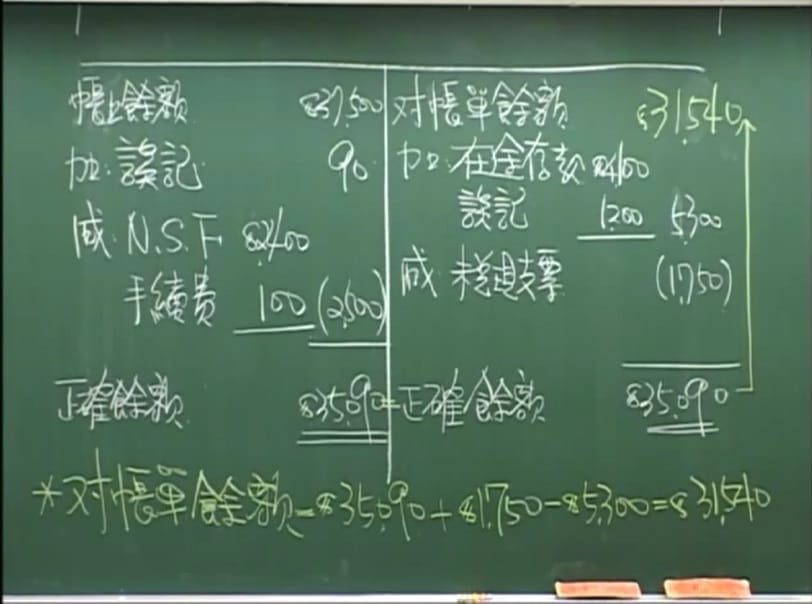 帳上餘額 $37,500
加: 誤記 90
減: N.S.F. $2,400
手續費 100 (2,500)
正確餘額 $35,090
对帳單餘額 $31,540
加: 在途存款 $4,100
誤記 1,200 5,300
減: 未兌現支票 (1,750)
正確餘額 $35,090
*对帳單餘額=$35,090+$1,750-$5,300=$31,540